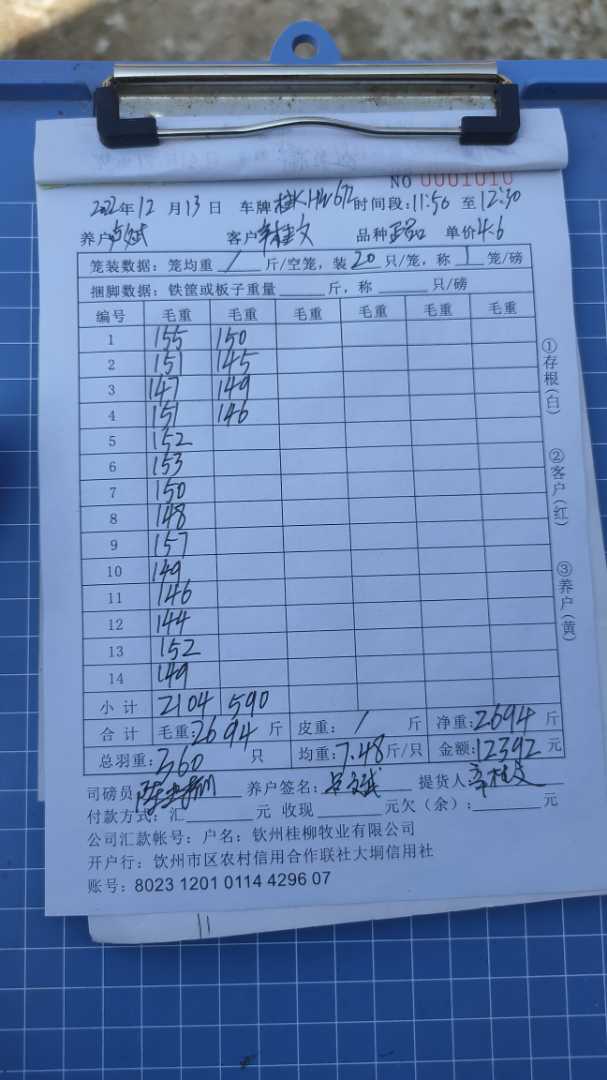 NO 0001010
2022年12月13日 车牌 桂KHW672 时间段:11:50 至 12:30
养户 客户 辛桂文 品种 正品 单价 4.6
笼装数据: 笼均重 / 斤/空笼, 装 20 只/笼, 称 1 笼/磅
捆脚数据: 铁筐或板子重量 斤, 称 只/磅
编号 毛重 毛重 毛重 毛重 毛重 毛重
1 155 150
2 151 145
3 147 149
4 151 146
5 152
6 153
7 150
8 148
9 157
10 149
11 146
12 144
13 152
14 149
小计 2104 590
合计 毛重:2694 斤 皮重: / 斤 净重:2694 斤
总羽重: 360 只 均重:7.48 斤/只 金额:12392 元
司磅员 养户签名: 提货人 辛桂文
付款方式: 汇 元 收现 元欠(余): 元
公司汇款帐号: 户名: 钦州桂柳牧业有限公司
开户行: 钦州市区农村信用合作联社大垌信用社
账号: 8023 1201 0114 4296 07
①存根(白)
②客户(红)
③养户(黄)